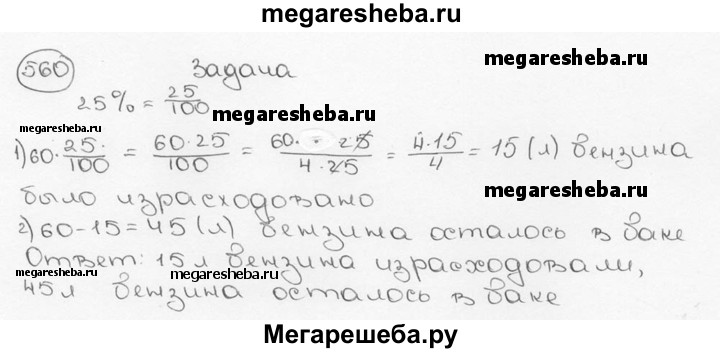 megaresheba.ru
560 Задача
megaresheba.ru
25% = 25/100
megaresheba.ru
megaresheba.ru
1) 60 · 25/100 = 60·25/100 = 60 · 25/4·25 = 4·15/4 = 15 (л) бензина
было израсходовано
megaresheba.ru
2) 60-15=45 (л) бензина осталось в баке
Ответ: 15 л бензина израсходовали,
megaresheba.ru
megaresheba.ru
45 л бензина осталось в баке
Мегарешеба.ру